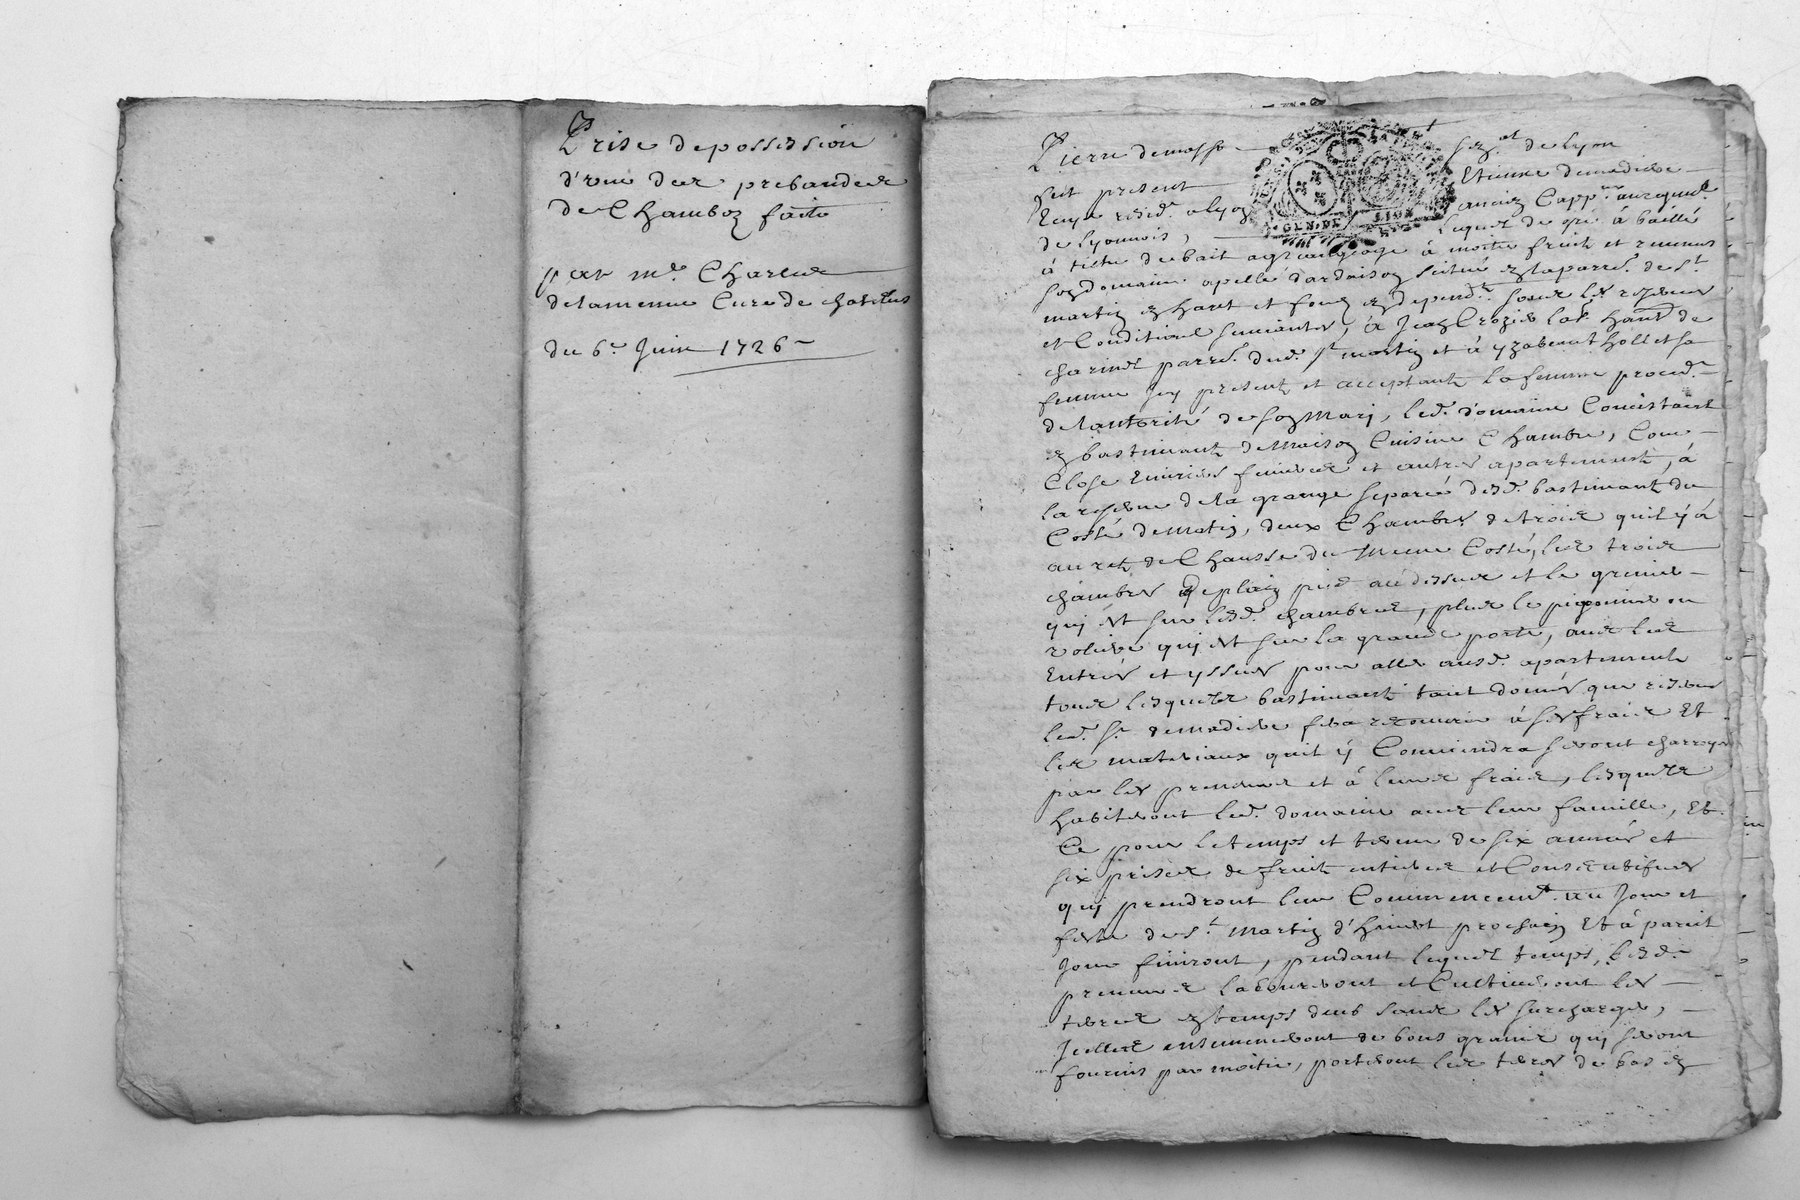 Prise de possession
d'une des prebandes
de Chamboz faite
par mre Charles
delamenue Cure de chatelus
du 6e Juin 1726
Pierre
de Lyon
fut present
Etienne demadiere
Ecuyer resid. a lyon
ancien Capp.
de Lyonnois,
Lequel de gré à baillé
à tiltre de bail à moitié fruit et revenus
son domaine apellé d'ardaison scitué en la parre. de St.
martin en haut et fonz en depend. sous les reserves
et Conditions suivantes, à Jean Crozier lab. hant. de
parre. dud. St martin et à yzabeau holl et sa
femme icy present et acceptants la femme proced.
de lautorité de son Mary, led. domaine Consistant
en bastiments de Maison Cuisine Chambre, Cour
Close Ecuries feniere et autres apartements, à
la reserve de la grange separée desd. bastiments du
Costé de matin, deux Chambres de trois quil y à
au rez de Chaussée du meme Costé, les trois
chambres de plain pied au dessus et le grenier
qui est sur lesd. chambres, plus le pigonnier ou
voliere qui est sur la grande porte, avec les
Entrées et yssues pour aller ausd. apartements
tous lesquels bastiments tant donnés que reservés
led. Sr. demadiere fera recouvrir à ses fraix Et
les materiaux quil y Conviendra seront charroyés
par les preneurs et à leurs fraix, lesquels
habiteront led. domaine avec leur famille, Et
Ce pour le temps et terme de six années et
six prises de fruits entieres et Consecutifves
qui prendront leur Commencemt. au Jour et
feste de St. Martin d'hivert prochain Et à pareil
Jour finiront, pendant lequel temps, lesd.
preneurs laboureront et Cultiveront les
terres en temps deub sans les surcharger,
Icelles ensemenceront de bons grains qui seront
fournis par moitié, porteront les terres de bas en